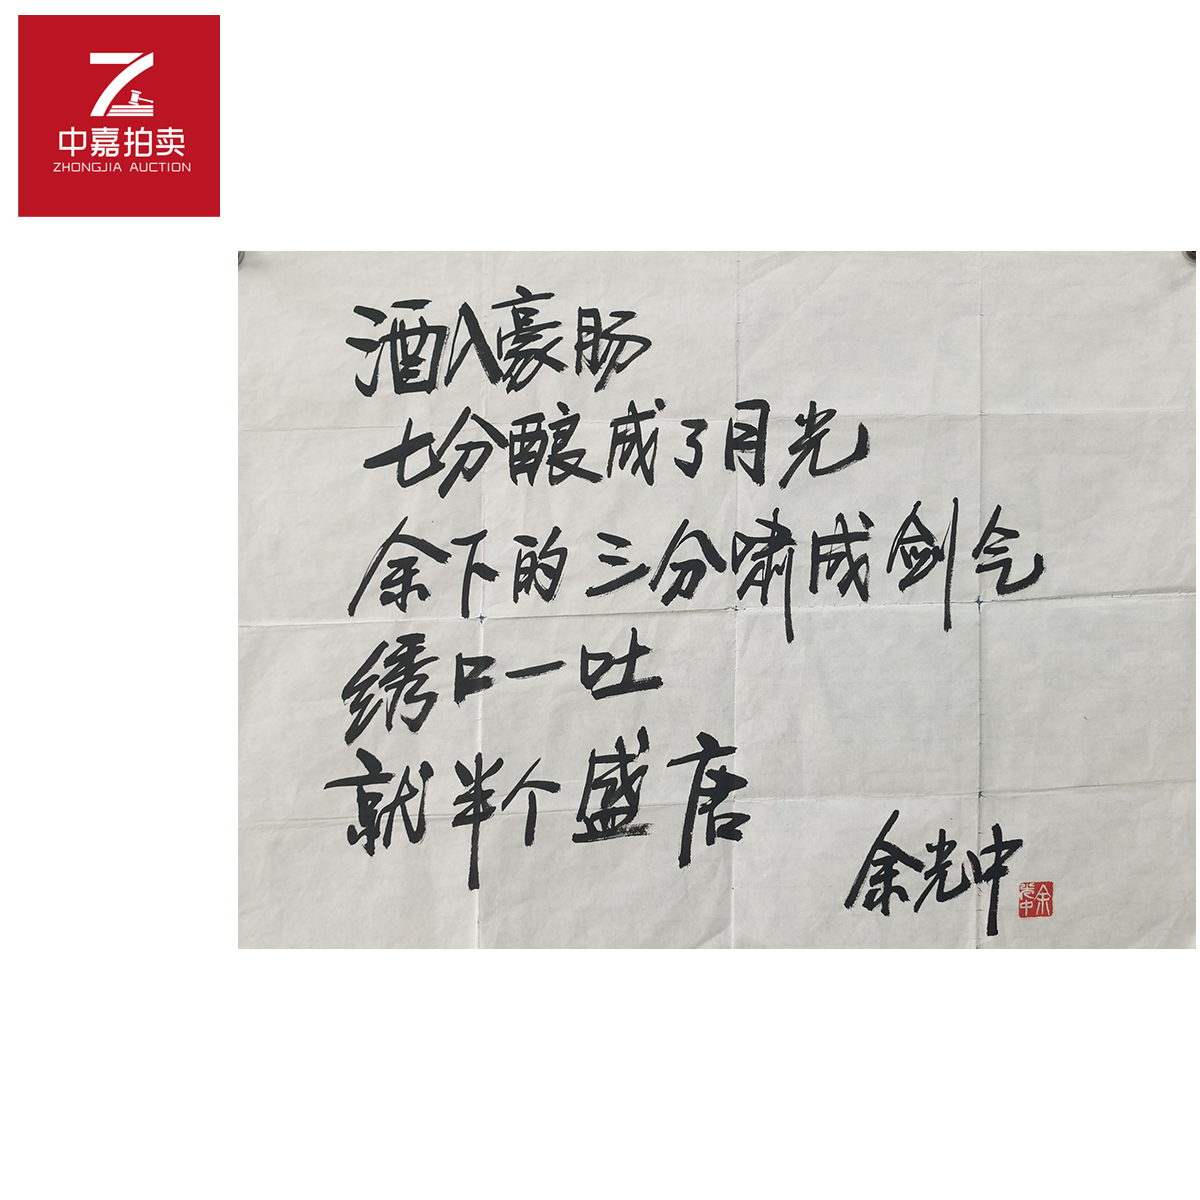 中嘉拍卖
ZHONGJIA AUCTION
酒入豪肠
七分酿成了月光
余下的三分啸成剑气
绣口一吐
就半个盛唐
余光中
余光中